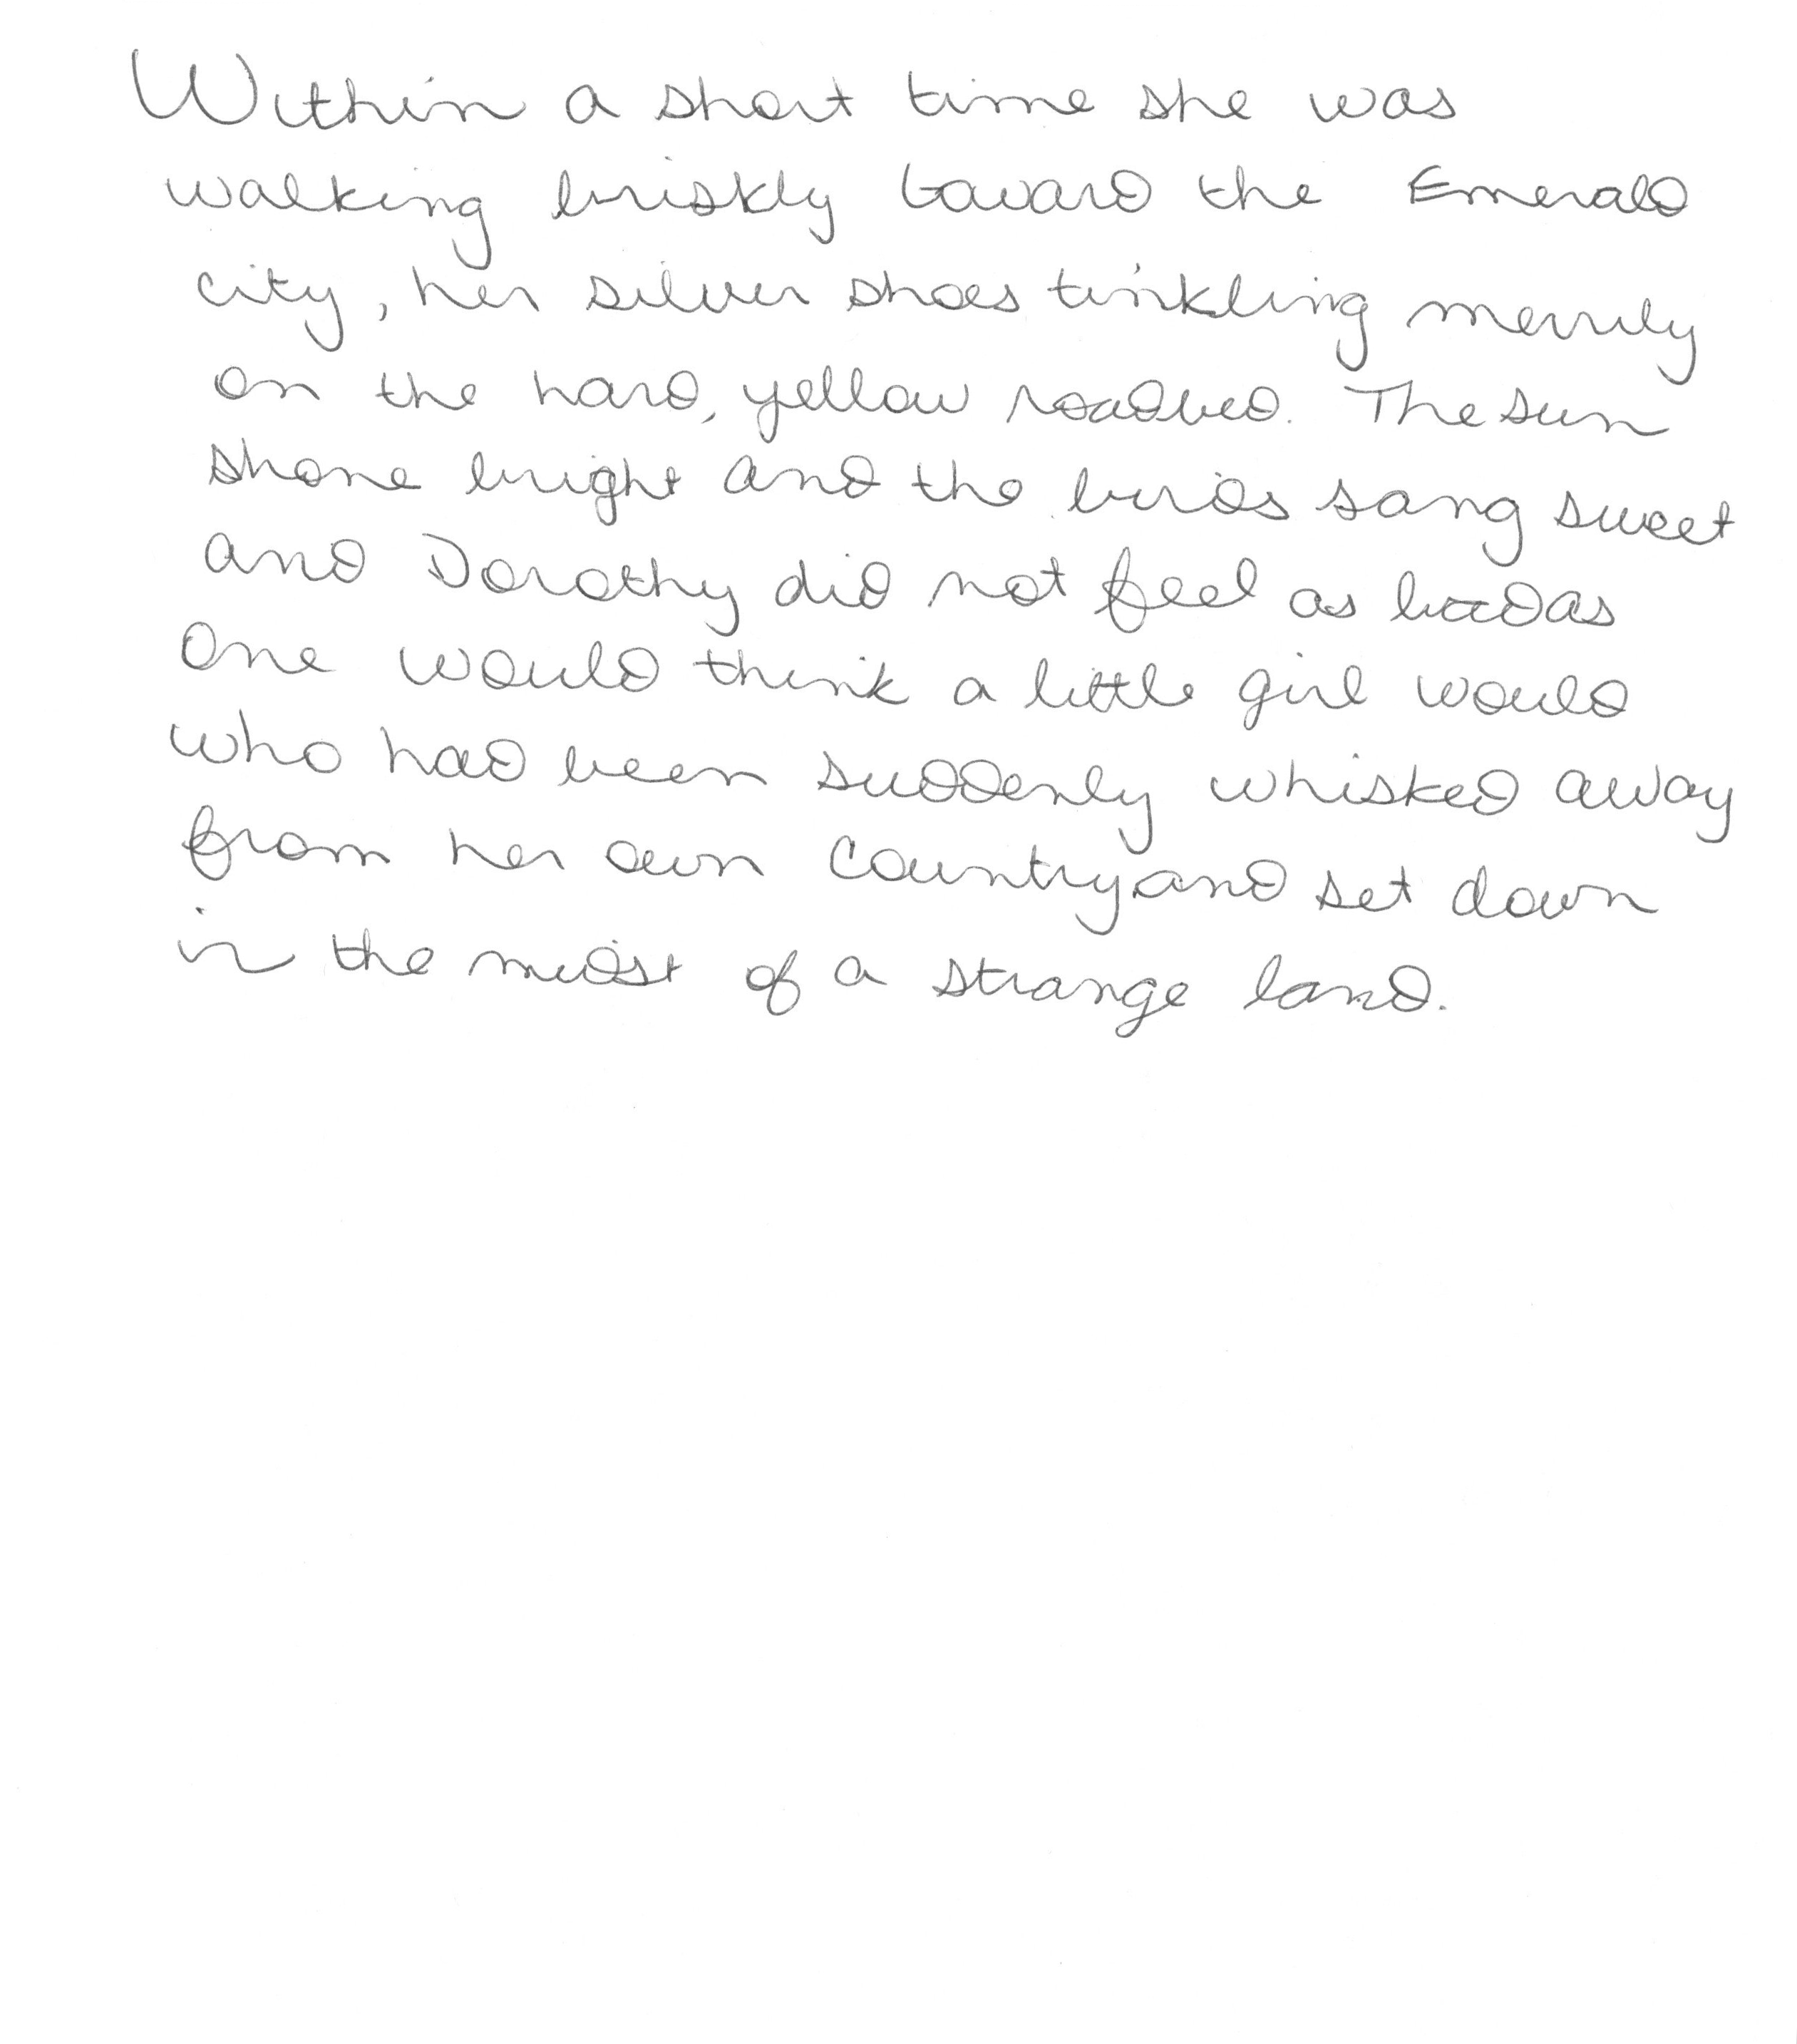 Within a short time she was
walking briskly toward the Emerald
city, her silver shoes tinkling merrily
on the hard, yellow roadbed. The sun
shone bright and the birds sang sweet
and Dorothy did not feel as bad as
one would think a little girl would
who had been suddenly whisked away
from her own country and set down
in the midst of a strange land.